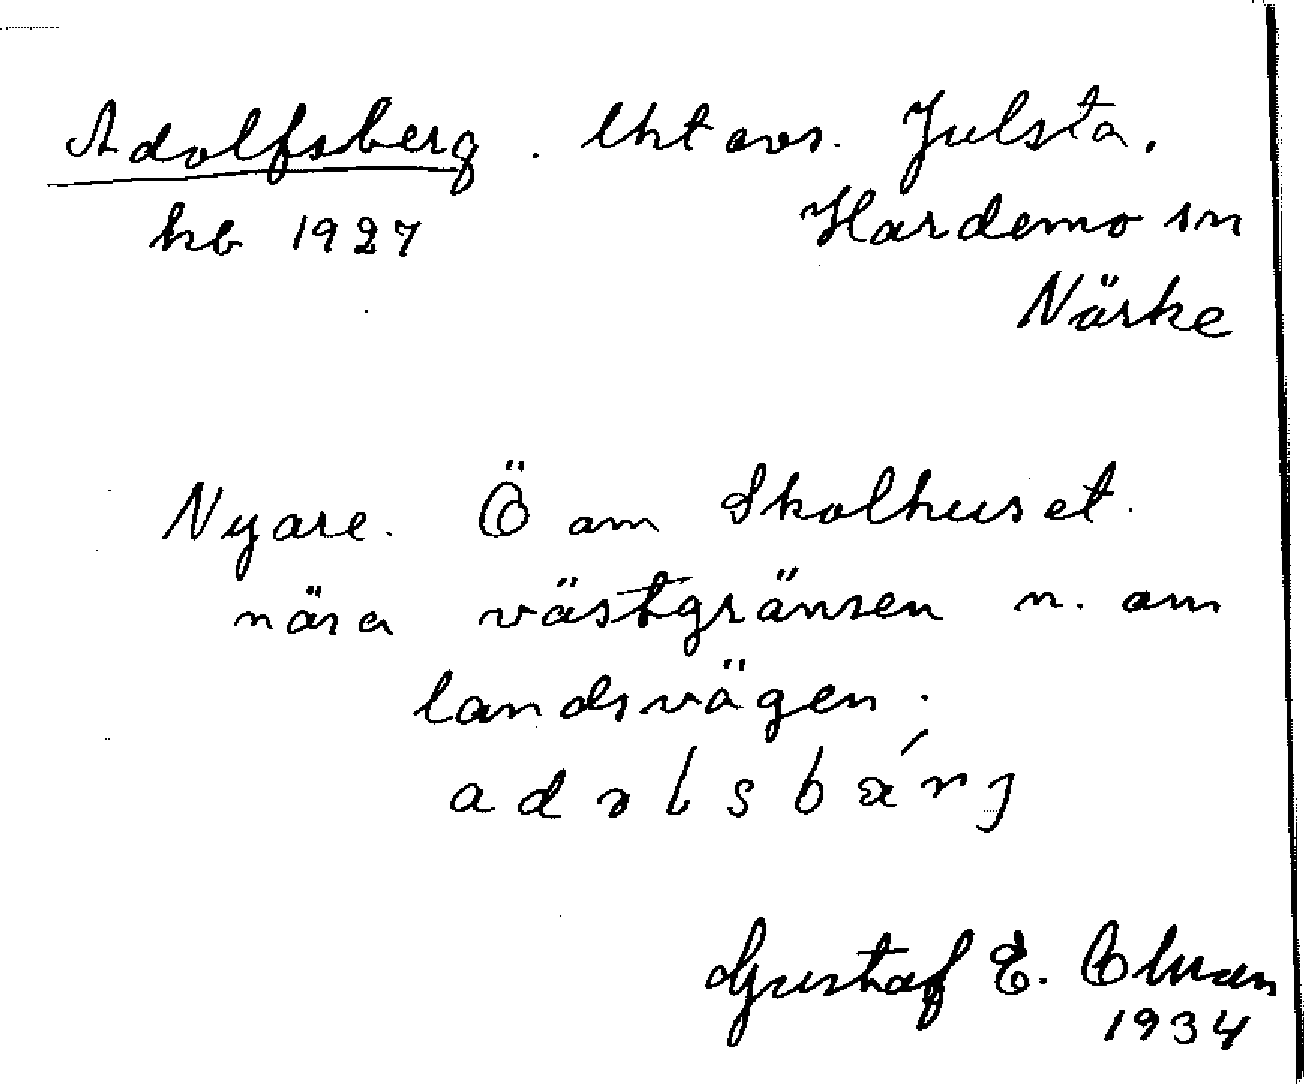 Adolfsberg. lht avs. Julsta.
hb 1927 Hardemo sn
Närke
Nyare. Ö om Skolhuset.
nära västgränsen n. om
landsvägen.
adɔlsbærj
Gustaf E. Olman
1934